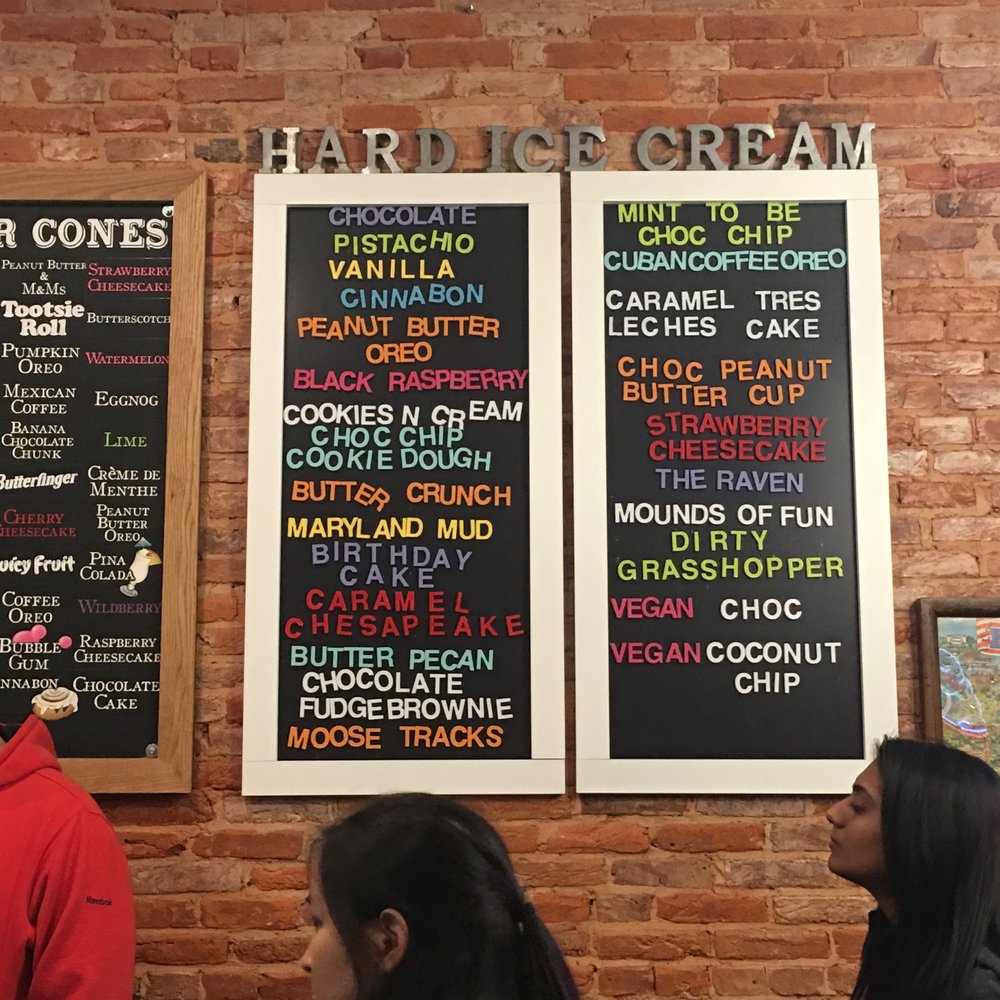 HARD ICE CREAM
R CONES
PEANUT BUTTER
&
M&MS
STRAWBERRY
CHEESECAKE
Tootsie
Roll
BUTTERSCOTCH
PUMPKIN
OREO
WATERMELON
MEXICAN
COFFEE
EGGNOG
BANANA
CHOCOLATE
CHUNK
LIME
Butterfinger
CRÈME DE
MENTHE
CHERRY
CHEESECAKE
PEANUT
BUTTER
OREO
uicy Fruit
PINA
COLADA
COFFEE
OREO
WILDBERRY
BUBBLE
GUM
RASPBERRY
CHEESECAKE
NNABON
CHOCOLATE
CAKE
CHOCOLATE
PISTACHIO
VANILLA
CINNABON
PEANUT BUTTER
OREO
BLACK RASPBERRY
COOKIES N CREAM
CHOC CHIP
COOKIE DOUGH
BUTTER CRUNCH
MARYLAND MUD
BIRTHDAY
CAKE
CARAMEL
CHESAPEAKE
BUTTER PECAN
CHOCOLATE
FUDGE BROWNIE
MOOSE TRACKS
MINT TO BE
CHOC CHIP
CUBAN COFFEE OREO
CARAMEL TRES
LECHES CAKE
CHOC PEANUT
BUTTER CUP
STRAWBERRY
CHEESECAKE
THE RAVEN
MOUNDS OF FUN
DIRTY
GRASSHOPPER
VEGAN CHOC
VEGAN COCONUT
CHIP
Reebok